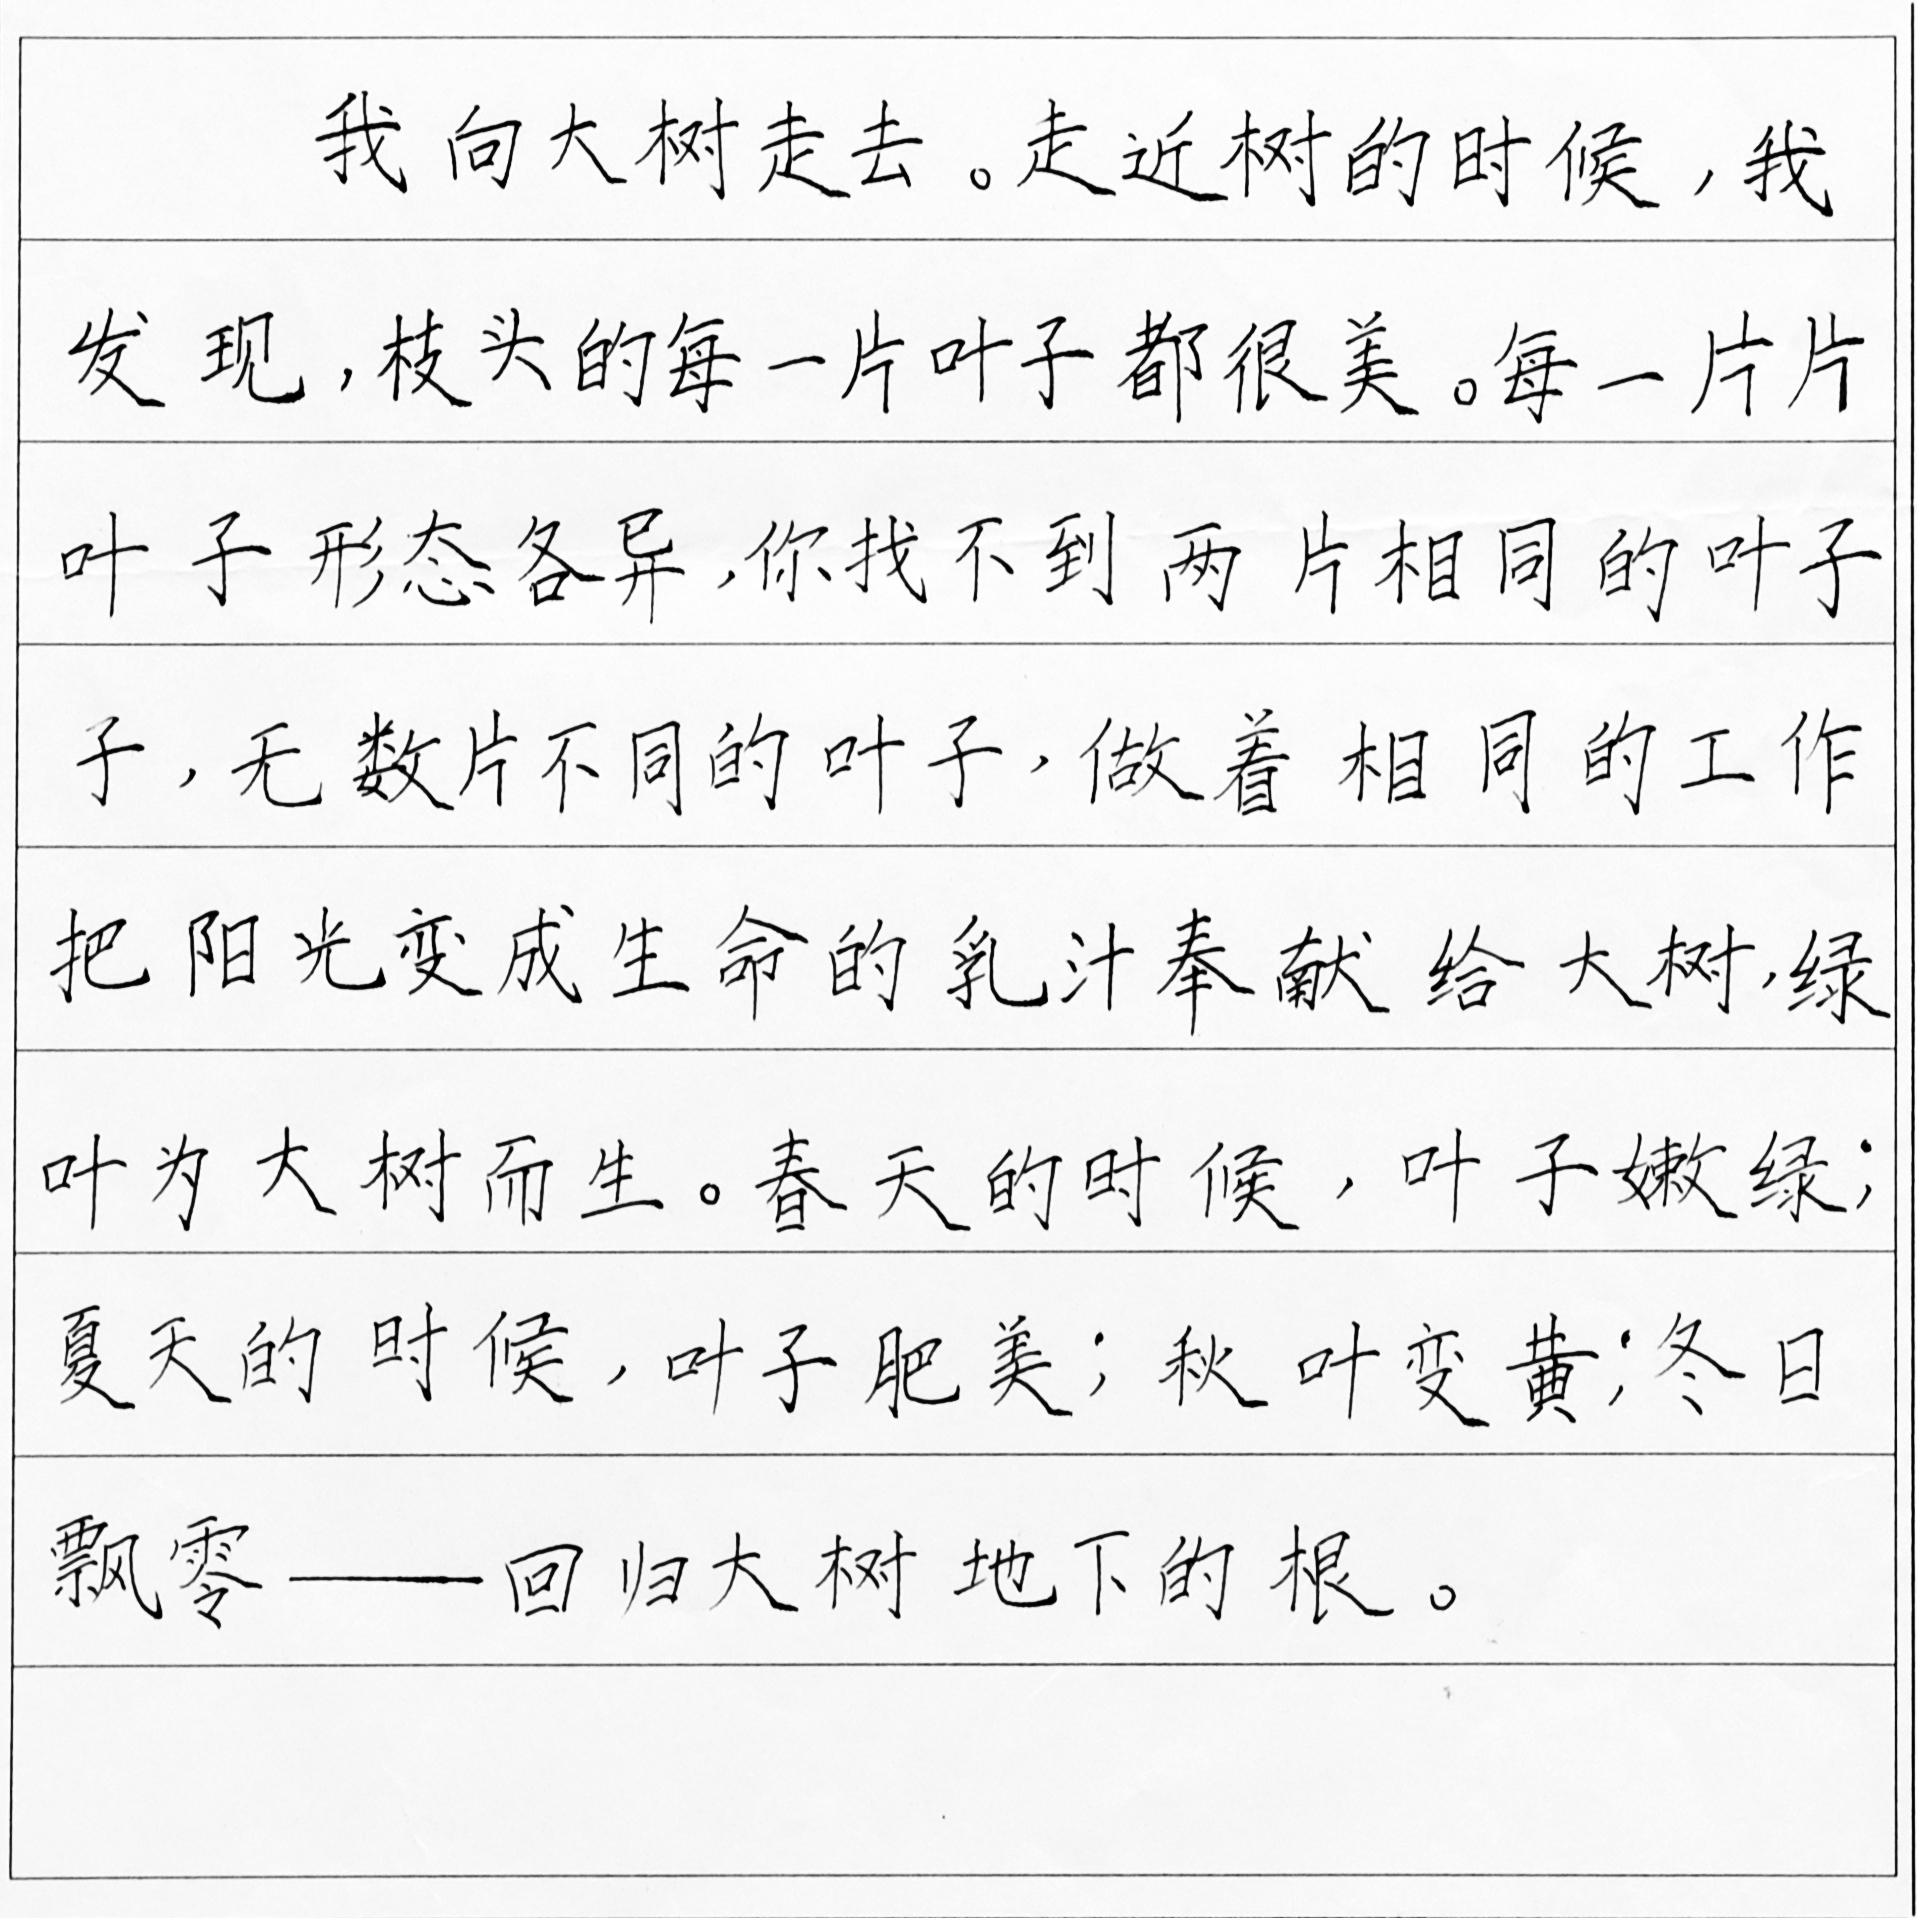 我向大树走去。走近树的时候，我
发现，枝头的每一片叶子都很美。每一片片
叶子形态各异，你找不到两片相同的叶子
子，无数片不同的叶子，做着相同的工作
把阳光变成生命的乳汁奉献给大树，绿
叶为大树而生。春天的时候，叶子嫩绿；
夏天的时候，叶子肥美；秋叶变黄；冬日
飘零——回归大树地下的根。